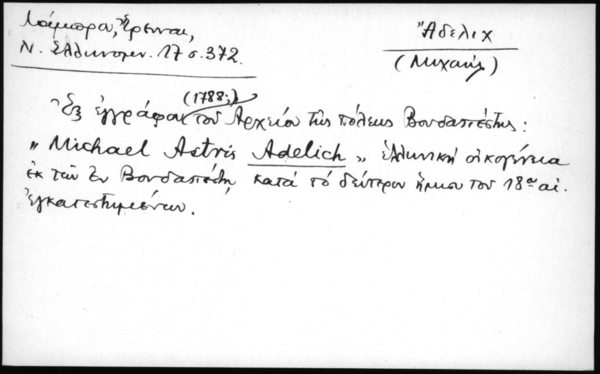 Λάμπρου, Ἔρευναι,
Ν. Ἑλληνομν. 17 σ. 372.
Ἄδελιχ
(Μιχαήλ)
(1788;)
Ἐξ ἐγγράφου τοῦ Ἀρχείου τῆς πόλεως Βουδαπέστης:
„ Michael Adelich „ ἑλληνικὴ οἰκογένεια
ἐκ τῶν ἐν Βουδαπέστῃ κατὰ τὸ δεύτερον ἥμισυ τοῦ 18ου αἰ.
ἐγκατεστημένων.